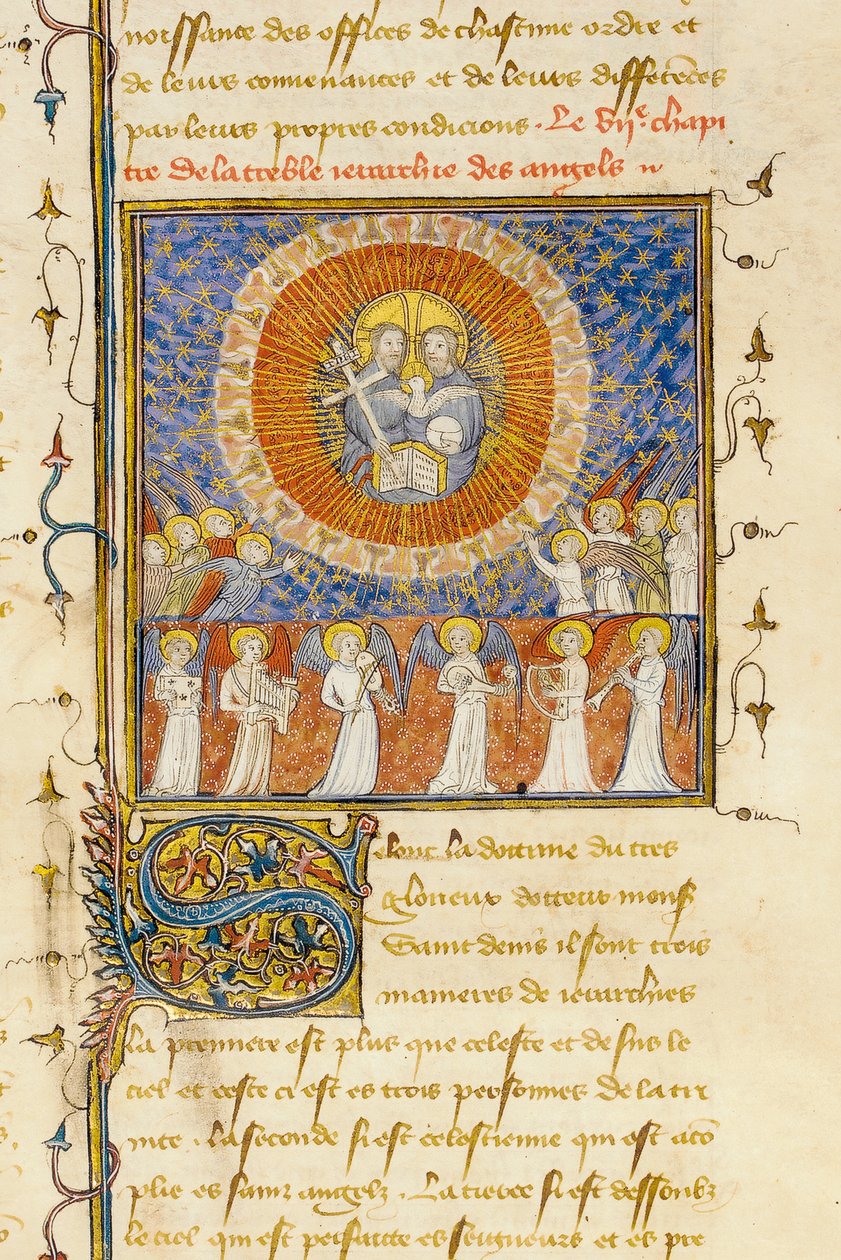 noissance des offices de chascune ordre et
de leurs conuenances et de leurs differẽces
par leurs propres condicions . Le vij.e chapi
tre de la treble ierarchie des angels
Selonc la doctrine du tres
glorieux docteur mons
Saint denis il sont trois
manieres de ierarchies
La premiere est plus que celeste et desus le
ciel et ceste ci est es trois personnes de la tri
nite . la seconde si est celestienne qui est acõ
plie es sainz angelz . La tierce si est dessoubz
le ciel qui est parfaicte es seigneurs et es pre